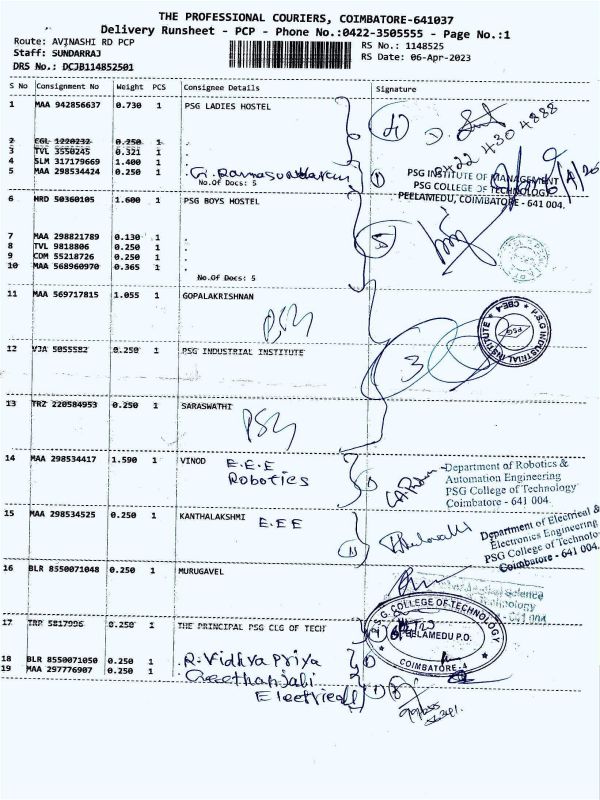 THE PROFESSIONAL COURIERS, COIMBATORE-641037
Delivery Runsheet - PCP - Phone No.:0422-3505555 - Page No.:1
Route: AVINASHI RD PCP
Staff: SUNDARRAJ
DRS No.: DCJB114852501
RS No.: 1148525
RS Date: 06-Apr-2023
S No Consignment No Weight PCS Consignee Details Signature
1 MAA 942856637 0.730 1 PSG LADIES HOSTEL
2 CGL 1220232 0.250 1
3 TVL 3550245 0.321 1
4 SLM 317179669 1.400 1
5 MAA 298534424 0.250 1
No.Of Docs: 5
PSG INSTITUTE OF MANAGEMENT
PSG COLLEGE OF TECHNOLOGY
PEELAMEDU, COIMBATORE - 641 004.
6 HRD 50360105 1.600 1 PSG BOYS HOSTEL
7 MAA 298821789 0.130 1
8 TVL 9818806 0.250 1
9 COM 55218726 0.250 1
10 MAA 568960970 0.365 1
No.Of Docs: 5
11 MAA 569717815 1.055 1 GOPALAKRISHNAN
PSG
P.S.G. INDUSTRIAL INSTITUTE
PSG
12 VJA 5055582 0.250 1 PSG INDUSTRIAL INSTITUTE
3
13 TRZ 220584953 0.250 1 SARASWATHI
PSG
14 MAA 298534417 1.590 1 VINOD E.E.E
Robotics
Department of Robotics &
Automation Engineering
PSG College of Technology
Coimbatore - 641 004.
15 MAA 298534525 0.250 1 KANTHALAKSHMI E.EE
Department of Electrical &
Electronics Engineering
PSG College of Technolo
Coimbatore - 641 004.
16 BLR 8550071048 0.250 1 MURUGAVEL
17 TRP 5817996 0.250 1 THE PRINCIPAL PSG CLG OF TECH
P.S.G. COLLEGE OF TECHNOLOGY
PEELAMEDU P.O.
COIMBATORE-4
18 BLR 8550071050 0.250 1 R. Vidhya Priya
19 MAA 297776907 0.250 1 Geethanjali
Electrical